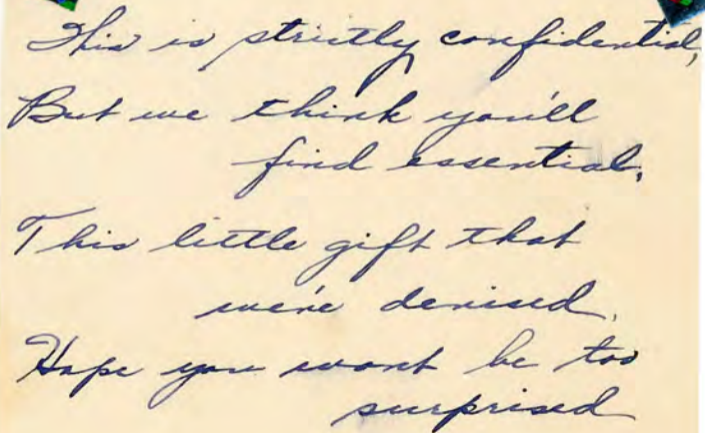 This is strictly confidential,
But we think you'll
find essential,
This little gift that
we've devised,
Hope you wont be too
surprised